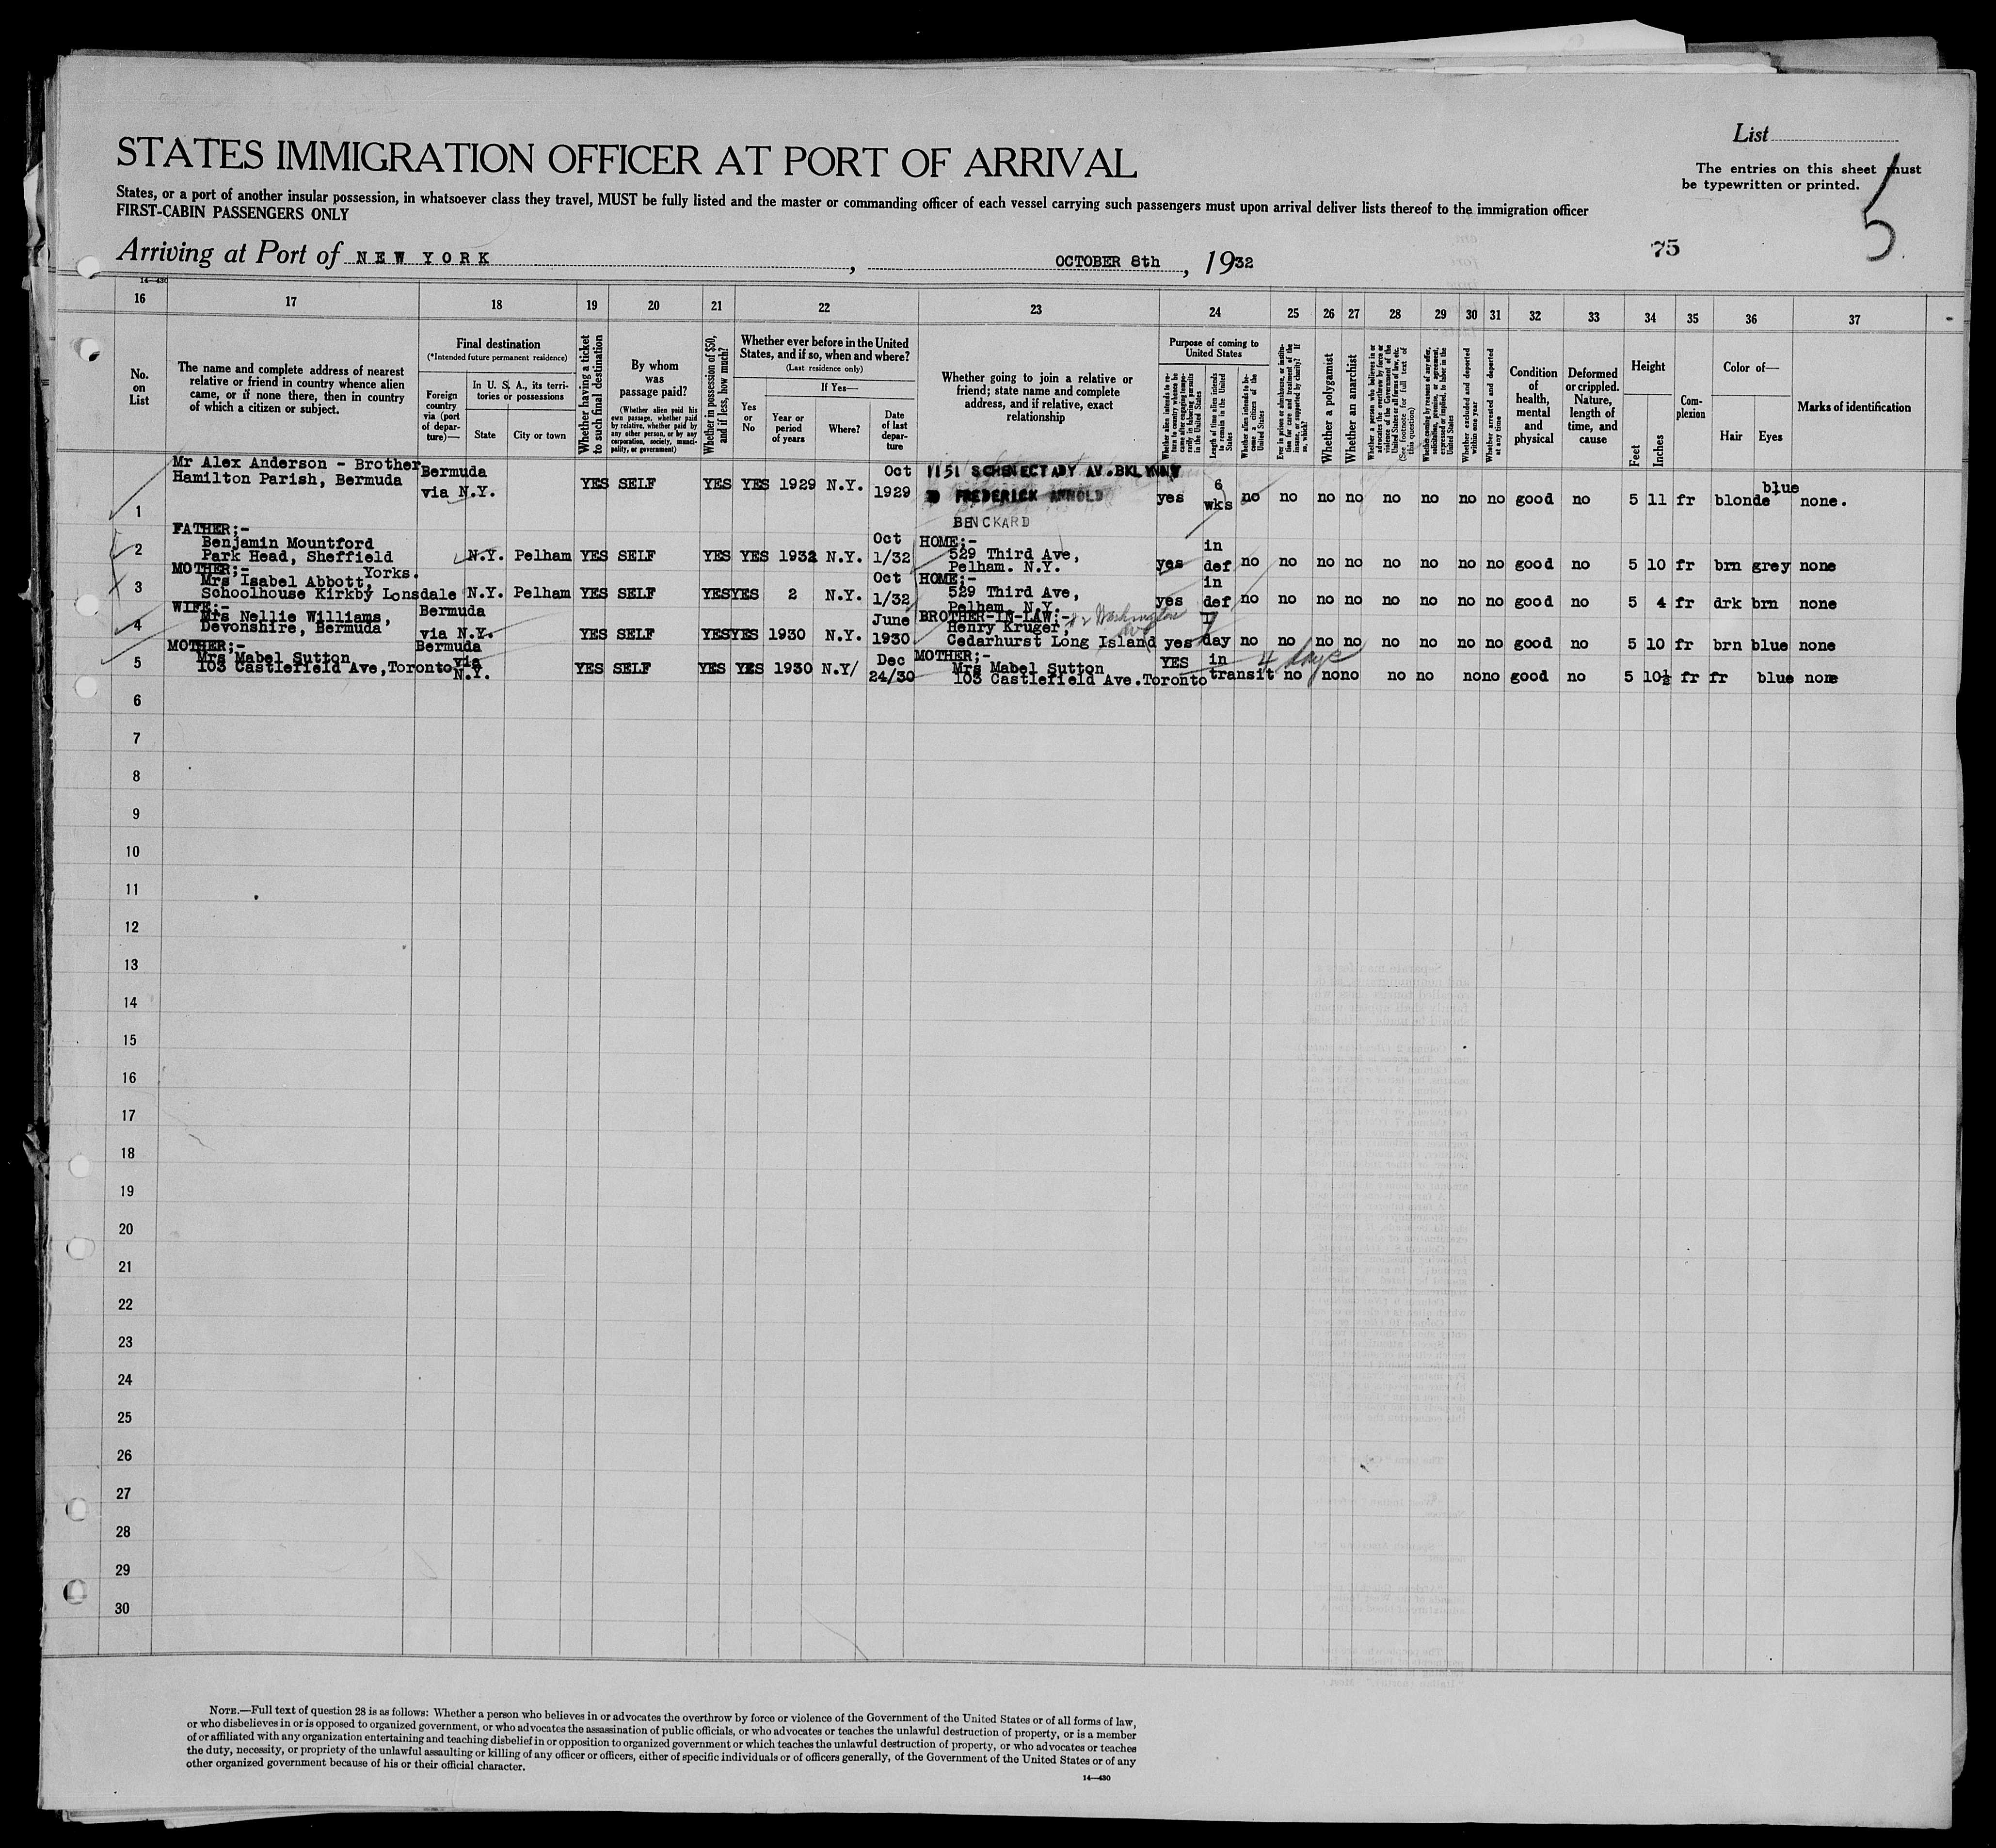 List
The entries on this sheet must
be typewritten or printed.
5
STATES IMMIGRATION OFFICER AT PORT OF ARRIVAL
States, or a port of another insular possession, in whatsoever class they travel, MUST be fully listed and the master or commanding officer of each vessel carrying such passengers must upon arrival deliver lists thereof to the immigration officer
FIRST-CABIN PASSENGERS ONLY
Arriving at Port of NEW YORK, OCTOBER 8th, 1932
75
14—430
16 17 18 19 20 21 22 23 24 25 26 27 28 29 30 31 32 33 34 35 36 37
No. on List
The name and complete address of nearest
relative or friend in country whence alien
came, or if none there, then in country
of which a citizen or subject.
Final destination
(*Intended future permanent residence)
Foreign country via (port of departure)—
In U. S. A., its territories or possessions
State
City or town
Whether having a ticket to such final destination
By whom was passage paid?
(Whether alien paid his own passage, whether paid by relative, whether paid by any other person, or by any corporation, society, municipality, or government)
Whether in possession of $50, and if less, how much?
Whether ever before in the United
States, and if so, when and where?
(Last residence only)
If Yes—
Yes or No
Year or period of years
Where?
Date of last departure
Whether going to join a relative or
friend; state name and complete
address, and if relative, exact
relationship
Purpose of coming to United States
Length of time alien intends to remain in the United States
Whether alien intends to become a citizen of the United States
Whether a polygamist
Whether an anarchist
(See footnote for full text of this question)
Whether excluded and deported within one year
Whether arrested and deported at any time
Condition of health, mental and physical
Deformed or crippled. Nature, length of time, and cause
Height
Feet
Inches
Complexion
Color of—
Hair
Eyes
Marks of identification
1 Mr Alex Anderson - Brother
Hamilton Parish, Bermuda
Bermuda via N.Y. YES SELF YES YES 1929 N.Y. Oct 1929
1151 SCHENECTADY AV.BKLYN NY
FREDERICK ARNOLD
BENCKARD
yes 6 wks no no no no no no no no good no 5 11 fr blonde blue none.
2 FATHER;-
Benjamin Mountford
Park Head, Sheffield
Yorks.
N.Y. Pelham YES SELF YES YES 1932 N.Y. Oct 1/32
HOME;-
529 Third Ave,
Pelham. N.Y.
yes in def no no no no no no no no good no 5 10 fr brn grey none
3 MOTHER;-
Mrs Isabel Abbott,
Schoolhouse Kirkby Lonsdale
N.Y. Pelham YES SELF YES YES 2 N.Y. Oct 1/32
HOME;-
529 Third Ave,
Pelham. N.Y.
yes in def no no no no no no no no good no 5 4 fr drk brn none
4 WIFE;-
Mrs Nellie Williams,
Devonshire, Bermuda
Bermuda via N.Y. YES SELF YES YES 1930 N.Y. June 1930
BROTHER-IN-LAW;-
Henry Kruger,
Washington Ave
Cedarhurst Long Island
yes 7 day no no no no no no no no good no 5 10 fr brn blue none
5 MOTHER;-
Mrs Mabel Sutton
103 Castlefield Ave,Toronto
Bermuda via N.Y. YES SELF YES YES 1930 N.Y/ Dec 24/30
MOTHER;-
Mrs Mabel Sutton
103 Castlefield Ave.Toronto
YES in transit 4 days no no no no no no no good no 5 10½ fr fr blue none
6
7
8
9
10
11
12
13
14
15
16
17
18
19
20
21
22
23
24
25
26
27
28
29
30
NOTE.—Full text of question 28 is as follows: Whether a person who believes in or advocates the overthrow by force or violence of the Government of the United States or of all forms of law,
or who disbelieves in or is opposed to organized government, or who advocates the assassination of public officials, or who advocates or teaches the unlawful destruction of property, or is a member
of or affiliated with any organization entertaining and teaching disbelief in or opposition to organized government or which teaches the unlawful destruction of property, or who advocates or teaches
the duty, necessity, or propriety of the unlawful assaulting or killing of any officer or officers, either of specific individuals or of officers generally, of the Government of the United States or of any
other organized government because of his or their official character.
14—430